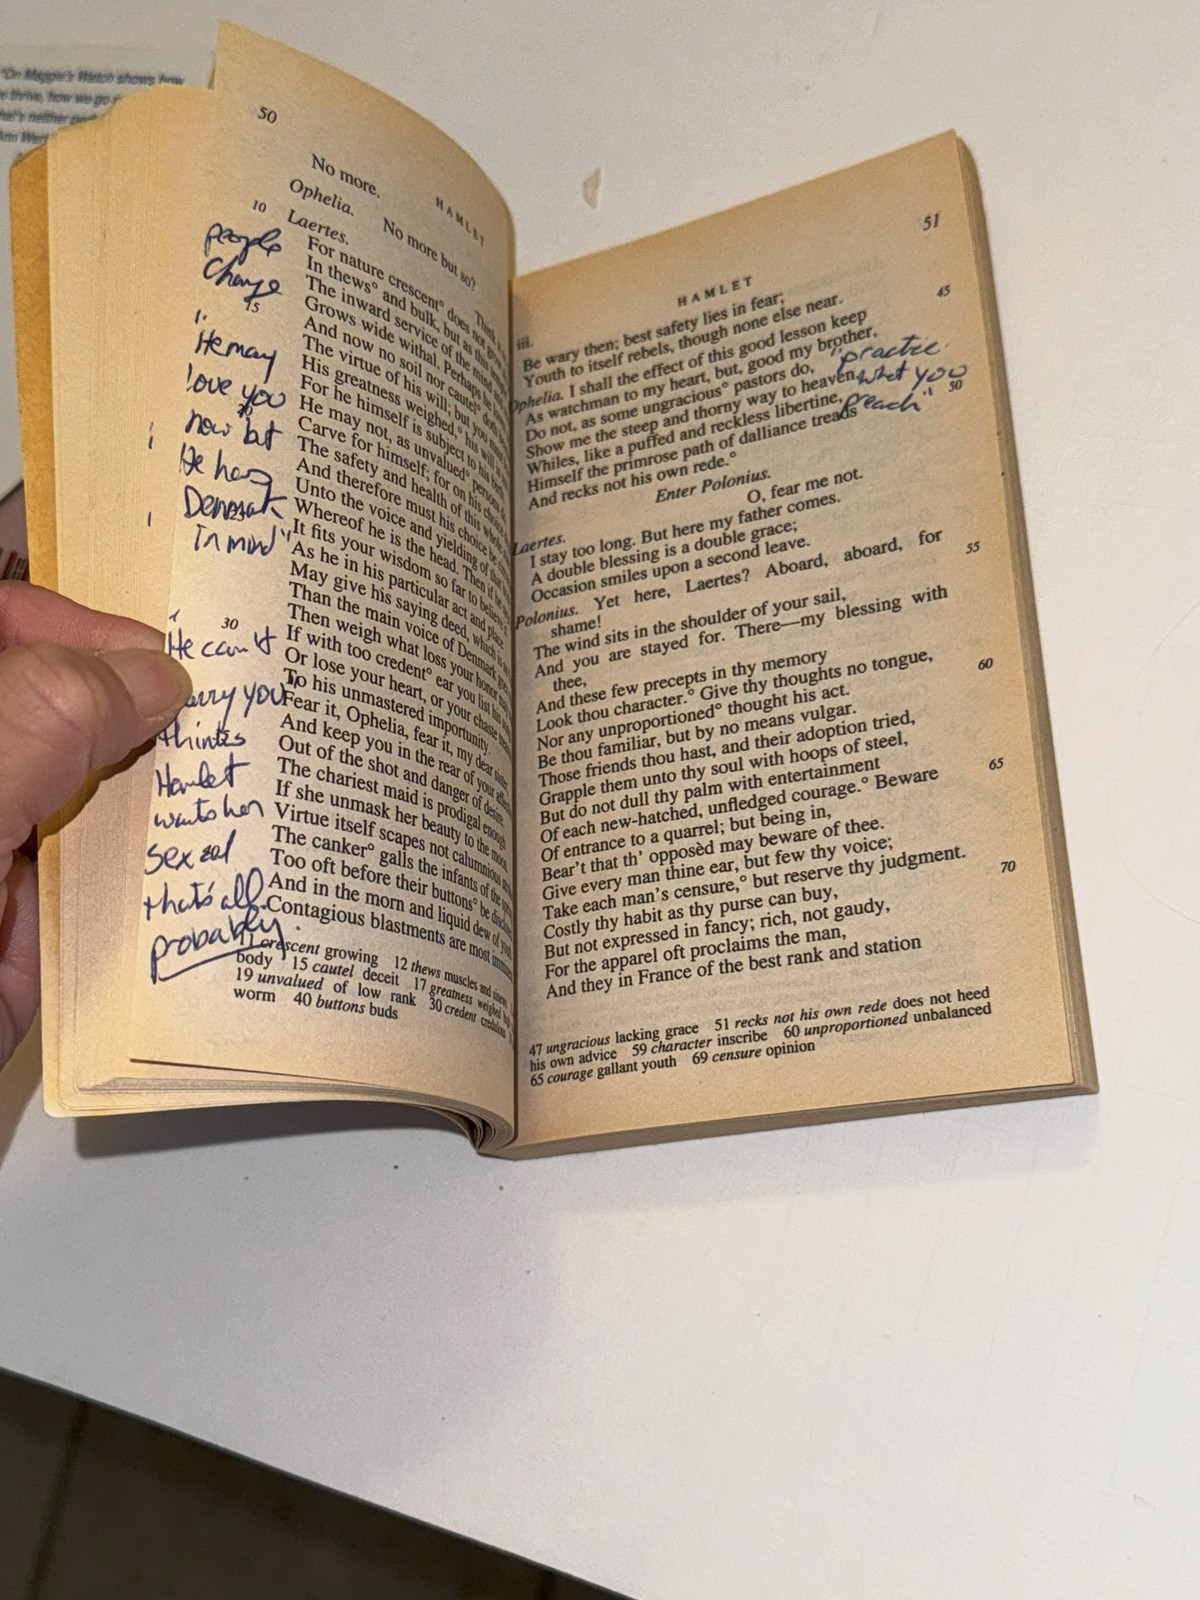 "On Maggie's Watch shows how
thrive, how we go
that's neither
Ann
50
HAMLET
No more.
Ophelia. No more but so?
10 Laertes. Think it
For nature crescent° does not
In thews° and bulk, but as this
The inward service of the mind
Grows wide withal. Perhaps he
15 And now no soil nor cautel°
The virtue of his will; but you
His greatness weighed,° his will is
For he himself is subject to his birth.
He may not, as unvalued° persons do,
Carve for himself; for on his choice
The safety and health of this whole
And therefore must his choice be
Unto the voice and yielding of that
Whereof he is the head. Then if he
25 It fits your wisdom so far to believe it
As he in his particular act and place
May give his saying deed, which is
Than the main voice of Denmark goes
Then weigh what loss your honor may
30 If with too credent° ear you list his
Or lose your heart, or your chaste
To his unmastered importunity.
Fear it, Ophelia, fear it, my dear sister,
And keep you in the rear of your
Out of the shot and danger of desire.
The chariest maid is prodigal enough
If she unmask her beauty to the moon.
Virtue itself scapes not calumnious
The canker° galls the infants of the
Too oft before their buttons° be
And in the morn and liquid dew of
Contagious blastments are most imminent.
people
Change
"
He may
love you
now but
He has
Denmark
in mind"
"
He can't
marry you
thinks
Hamlet
wants her
sexual
that's all.
probably.
11 crescent growing 12 thews muscles and
body 15 cautel deceit 17 greatness weighed
19 unvalued of low rank 30 credent credulous
worm 40 buttons buds
51
HAMLET
iii.
Be wary then; best safety lies in fear;
45 Youth to itself rebels, though none else near.
Ophelia. I shall the effect of this good lesson keep
As watchman to my heart, but, good my brother,
Do not, as some ungracious° pastors do,
Show me the steep and thorny way to heaven,
50 Whiles, like a puffed and reckless libertine,
Himself the primrose path of dalliance treads
And recks not his own rede.°
"practice
what you
preach"
Enter Polonius.
Laertes. O, fear me not.
I stay too long. But here my father comes.
A double blessing is a double grace;
Occasion smiles upon a second leave.
55 Polonius. Yet here, Laertes? Aboard, aboard, for
shame!
The wind sits in the shoulder of your sail,
And you are stayed for. There—my blessing with
thee,
And these few precepts in thy memory
Look thou character.° Give thy thoughts no tongue,
60 Nor any unproportioned° thought his act.
Be thou familiar, but by no means vulgar.
Those friends thou hast, and their adoption tried,
Grapple them unto thy soul with hoops of steel,
But do not dull thy palm with entertainment
65 Of each new-hatched, unfledged courage.° Beware
Of entrance to a quarrel; but being in,
Bear't that th' opposèd may beware of thee.
Give every man thine ear, but few thy voice;
Take each man's censure,° but reserve thy judgment.
70 Costly thy habit as thy purse can buy,
But not expressed in fancy; rich, not gaudy,
For the apparel oft proclaims the man,
And they in France of the best rank and station
47 ungracious lacking grace 51 recks not his own rede does not heed
his own advice 59 character inscribe 60 unproportioned unbalanced
65 courage gallant youth 69 censure opinion